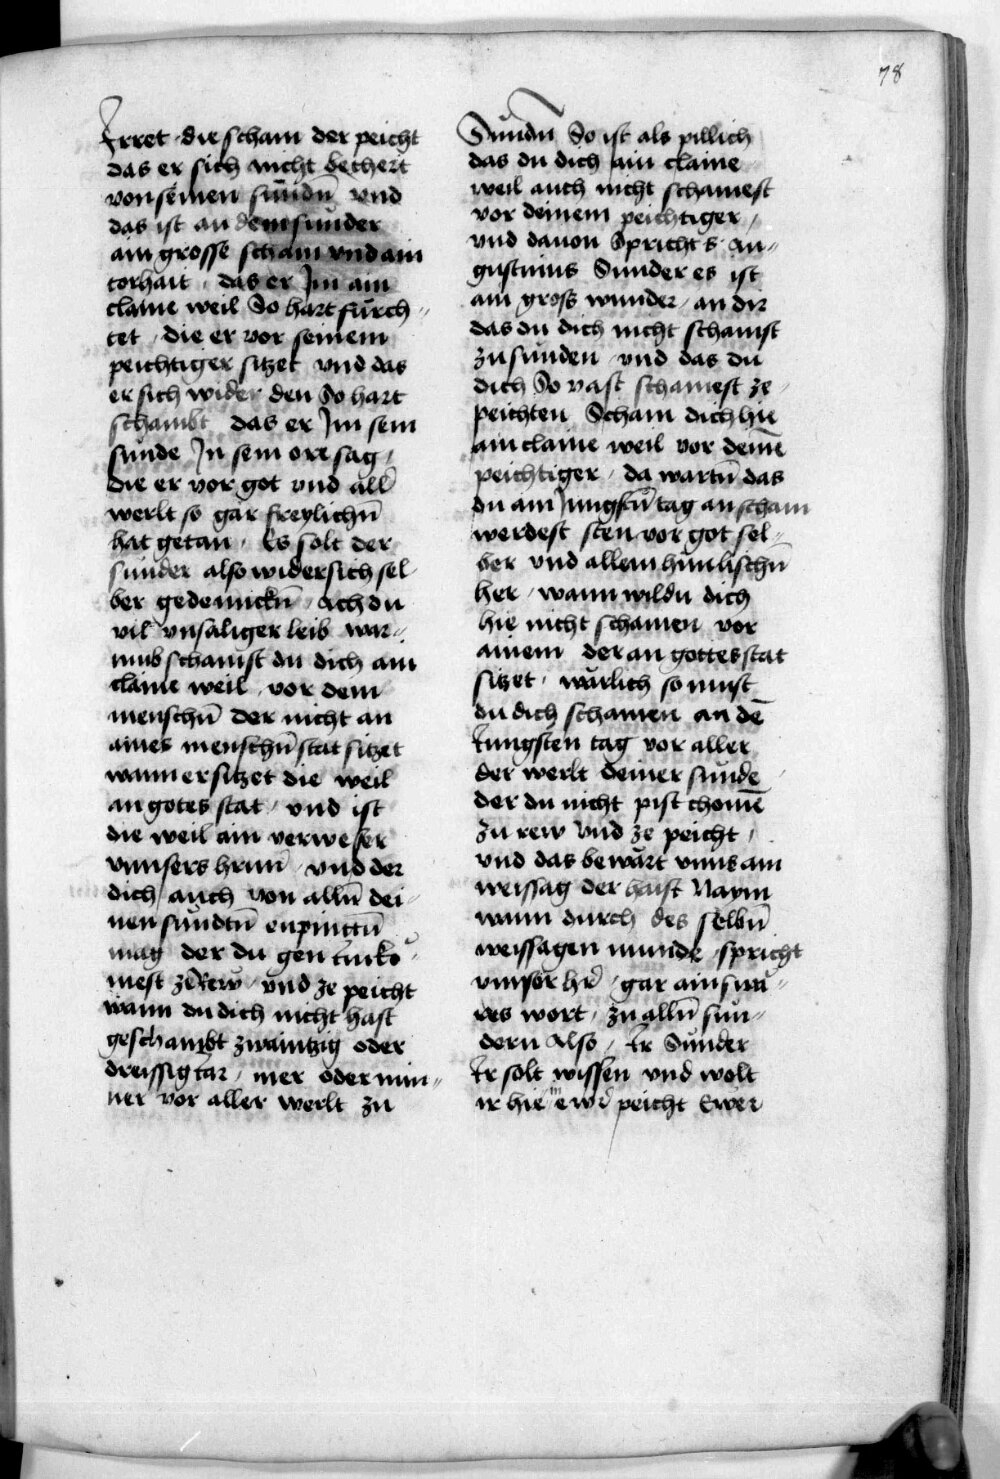 78
Irret die scham der peicht
das er sich nicht bechert
von seinen sundn̄ vnd
das ist an dem sunder
ain grosse scham vnd ain
torhait das er Im ain
claine weil So hart furch¬
tet die er vor seinem
peichtiger sitzet vnd das
er sich wider den So hart
schambt das er Im sein
sunde In sein ore sag
die er vor got vnd all̄
werlt so gar freylichn̄
hat getan Es solt der
sunder also wider sich sel
ber gedennckn̄ Ach du
vil vnsaliger leib war¬
umb schamst du dich ain
claine weil vor dem
menschn̄ der nicht an
aines menschn̄ stat sitzet
wann er sitzet die weil
an gotes stat vnd ist
die weil ain verweser
vnnsers hrnn̄ vnd der
dich auch von alln̄ dei
nen sundtn̄ enpinttn̄
mag der du gen im ko
mest ze Rew vnd ze peicht
wann du dich nicht hast
geschambt zwaintzig oder
dreissig Iar mer oder min¬
ner vor aller werlt zu
Sundn So ist als pillich
das du dich ain claine
weil auch nicht schamest
vor deinem peichtiger
vnd dauon Spricht S Au¬
gustinus Sunder es ist
ain gross wunder an dir
das du dich nicht schamst
zu sunden vnd das du
dich So vast schamest ze
peichten Scham dich hie
ain claine weil vor deinē
peichtiger da wartn̄ das
du am Jungstn̄ tag an scham
werdest sten vor got sel¬
ber vnd allem himlischn̄
her wann wildu dich
hie nicht schamen vor
ainem der an gottes stat
sitzet warlich so must
du dich schamen an dē
Iungsten tag vor aller
der werlt deiner sunde
der du nicht pist chomē
zu rew vnd ze peicht
vnd das bewart vnns ain
weissag der haist Naym
wann durch des selbn̄
weissagen munde spricht
vnnser hr̄ gar ain swa¬
res wort zu alln̄ sun¬
dern Also Ir Sunder
Ir solt wissen vnd wolt
ir hie in ewr̄ peicht Ewer